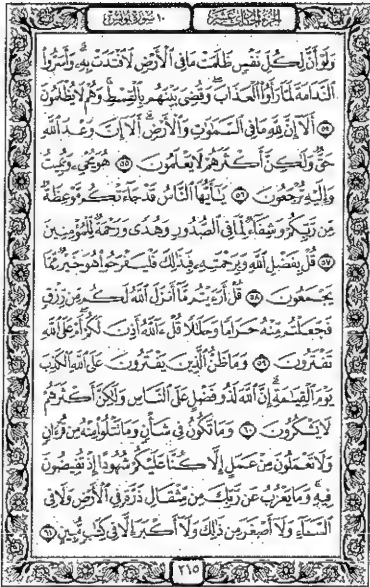 الجزء الحادي عشر
١٠ سورة يونس
وَلَوْ أَنَّ لِكُلِّ نَفْسٍ ظَلَمَتْ مَا فِي ٱلْأَرْضِ لَٱفْتَدَتْ بِهِۦۗ وَأَسَرُّوا۟
ٱلنَّدَامَةَ لَمَّا رَأَوُا۟ ٱلْعَذَابَۖ وَقُضِىَ بَيْنَهُم بِٱلْقِسْطِۚ وَهُمْ لَا يُظْلَمُونَ
٥٤ أَلَآ إِنَّ لِلَّهِ مَا فِي ٱلسَّمَٰوَٰتِ وَٱلْأَرْضِۗ أَلَآ إِنَّ وَعْدَ ٱللَّهِ
حَقٌّ وَلَٰكِنَّ أَكْثَرَهُمْ لَا يَعْلَمُونَ ٥٥ هُوَ يُحْىِۦ وَيُمِيتُ
وَإِلَيْهِ تُرْجَعُونَ ٥٦ يَٰٓأَيُّهَا ٱلنَّاسُ قَدْ جَآءَتْكُم مَّوْعِظَةٌ
مِّن رَّبِّكُمْ وَشِفَآءٌ لِّمَا فِي ٱلصُّدُورِ وَهُدًى وَرَحْمَةٌ لِّلْمُؤْمِنِينَ
٥٧ قُلْ بِفَضْلِ ٱللَّهِ وَبِرَحْمَتِهِۦ فَبِذَٰلِكَ فَلْيَفْرَحُوا۟ هُوَ خَيْرٌ مِّمَّا
يَجْمَعُونَ ٥٨ قُلْ أَرَءَيْتُم مَّآ أَنزَلَ ٱللَّهُ لَكُم مِّن رِّزْقٍ
فَجَعَلْتُم مِّنْهُ حَرَامًا وَحَلَٰلًا قُلْ ءَآللَّهُ أَذِنَ لَكُمْۖ أَمْ عَلَى ٱللَّهِ
تَفْتَرُونَ ٥٩ وَمَا ظَنُّ ٱلَّذِينَ يَفْتَرُونَ عَلَى ٱللَّهِ ٱلْكَذِبَ
يَوْمَ ٱلْقِيَٰمَةِۗ إِنَّ ٱللَّهَ لَذُو فَضْلٍ عَلَى ٱلنَّاسِ وَلَٰكِنَّ أَكْثَرَهُمْ
لَا يَشْكُرُونَ ٦٠ وَمَا تَكُونُ فِي شَأْنٍ وَمَا تَتْلُوا۟ مِنْهُ مِن قُرْءَانٍ
وَلَا تَعْمَلُونَ مِنْ عَمَلٍ إِلَّا كُنَّا عَلَيْكُمْ شُهُودًا إِذْ تُفِيضُونَ
فِيهِۚ وَمَا يَعْزُبُ عَن رَّبِّكَ مِن مِّثْقَالِ ذَرَّةٍ فِي ٱلْأَرْضِ وَلَا فِي
ٱلسَّمَآءِ وَلَآ أَصْغَرَ مِن ذَٰلِكَ وَلَآ أَكْبَرَ إِلَّا فِي كِتَٰبٍ مُّبِينٍ ٦١
٢١٥